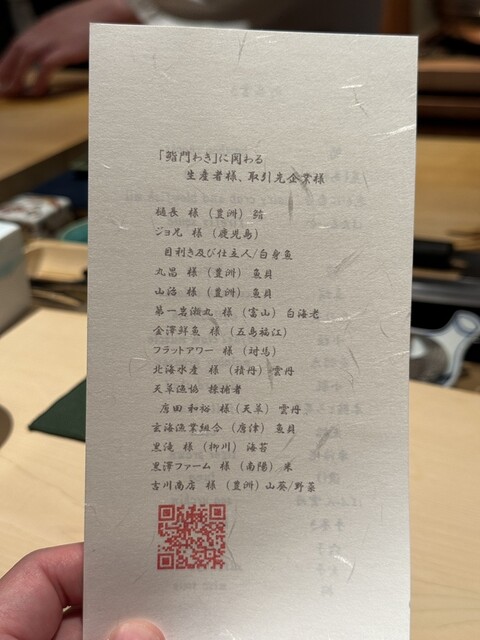 「鮨門わき」に関わる
生産者様、取引先企業様
樋長 様 (豊洲) 鮪
ジョ兄 様 (鹿児島)
目利き及び仕立人/白身魚
丸昌 様 (豊洲) 魚貝
山治 様 (豊洲) 魚貝
第一岩瀬丸 様 (富山) 白海老
金澤鮮魚 様 (五島福江)
フラットアワー 様 (対馬)
北海水産 様 (積丹) 雲丹
天草漁協 採捕者
房田 和裕 様 (天草) 雲丹
玄海漁業組合 (唐津) 魚貝
黒滝 様 (柳川) 海苔
黒澤ファーム 様 (南陽) 米
吉川商店 様 (豊洲) 山葵/野菜